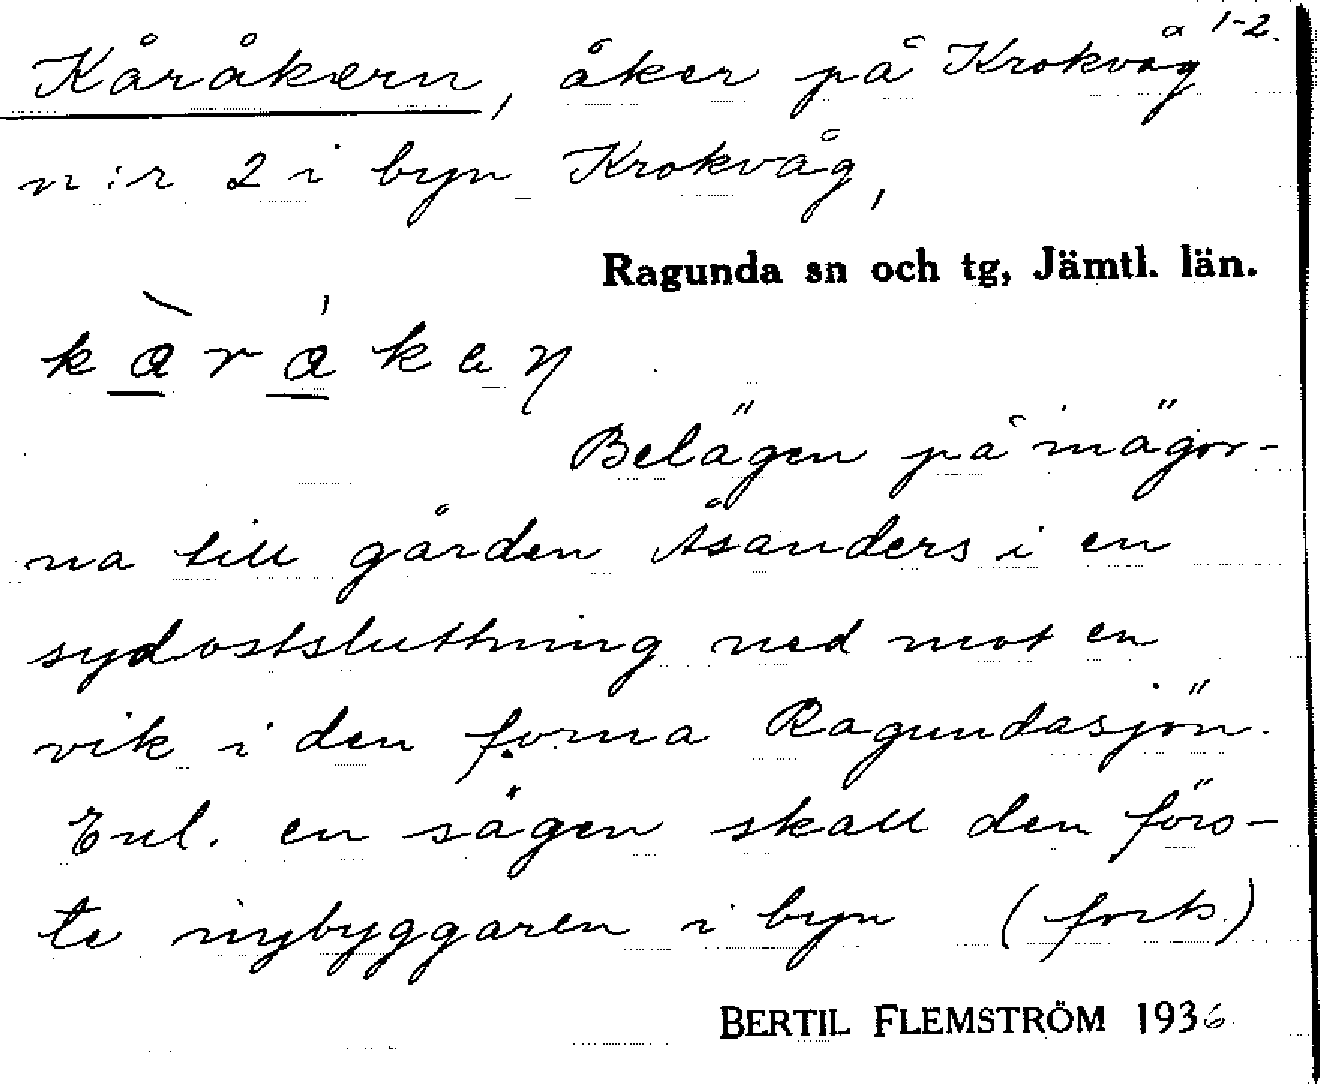 1-2.
Kåråkern, åker på Krokvåg
n:r 2 i byn Krokvåg,
Ragunda sn och tg, Jämtl. län.
kàráken
Belägen på inägor-
na till gården Åsanders i en
sydostsluttning ned mot en
vik i den forna Ragundasjön.
Enl. en sägen skall den förs-
te nybyggaren i byn (forts.)
BERTIL FLEMSTRÖM 1936